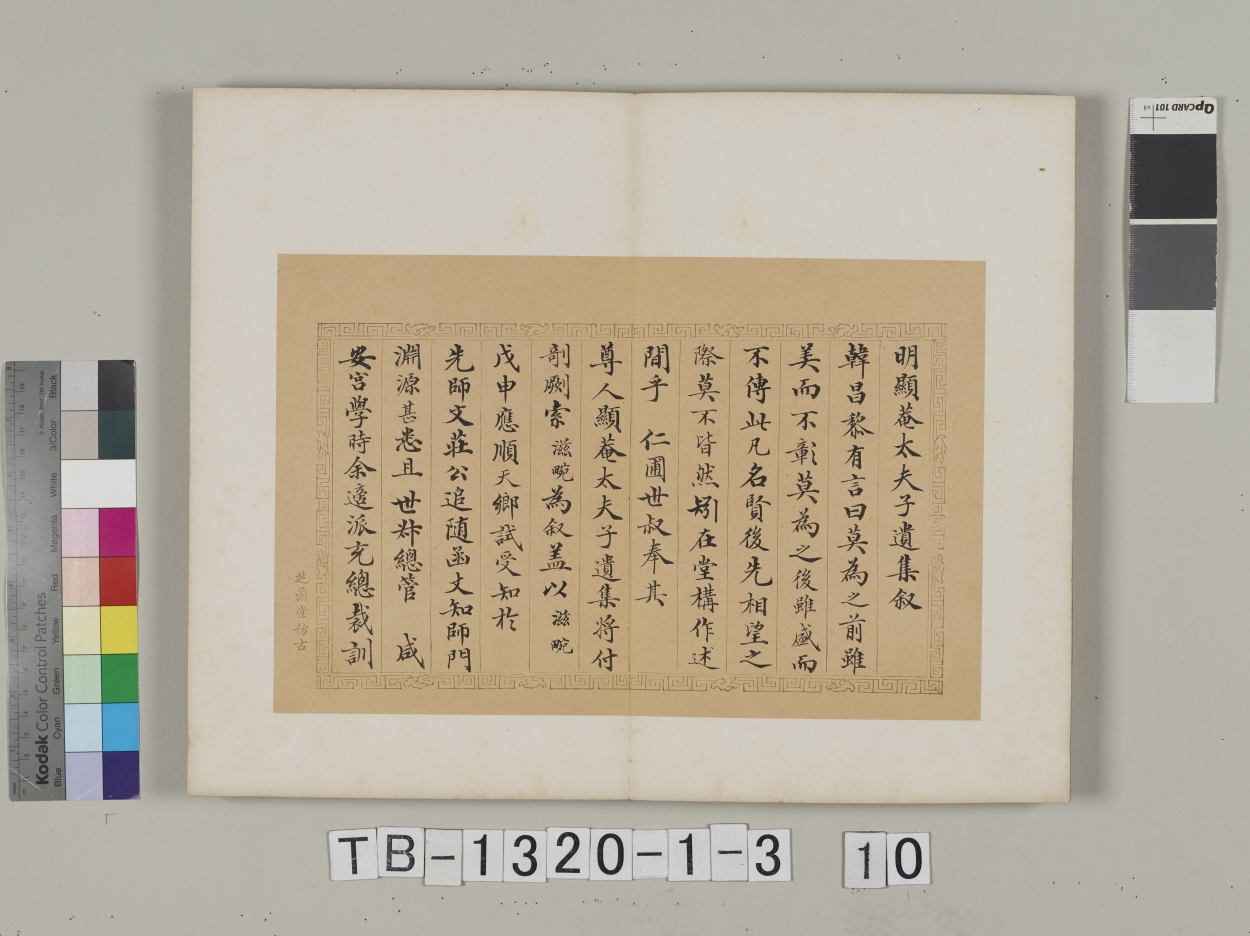 明顯菴太夫子遺集叙
韓昌黎有言曰莫為之前雖
美而不彰莫為之後雖盛而
不傳此凡名賢後先相望之
際莫不皆然矧在堂構作述
間乎 仁圃世叔奉其
尊人顯菴太夫子遺集將付
剞劂索滋畹為叙盖以滋畹
戊申應順天鄉試受知於
先師文莊公追随函丈知師門
淵源甚悉且世𠦑總管 咸
安宮學時余適派充總裁訓
芝蘭堂仿古
QpCARD 101
Kodak Color Control Patches
Blue Cyan Green Yellow Red Magenta White 3/Color Black
TB-1320-1-3 10